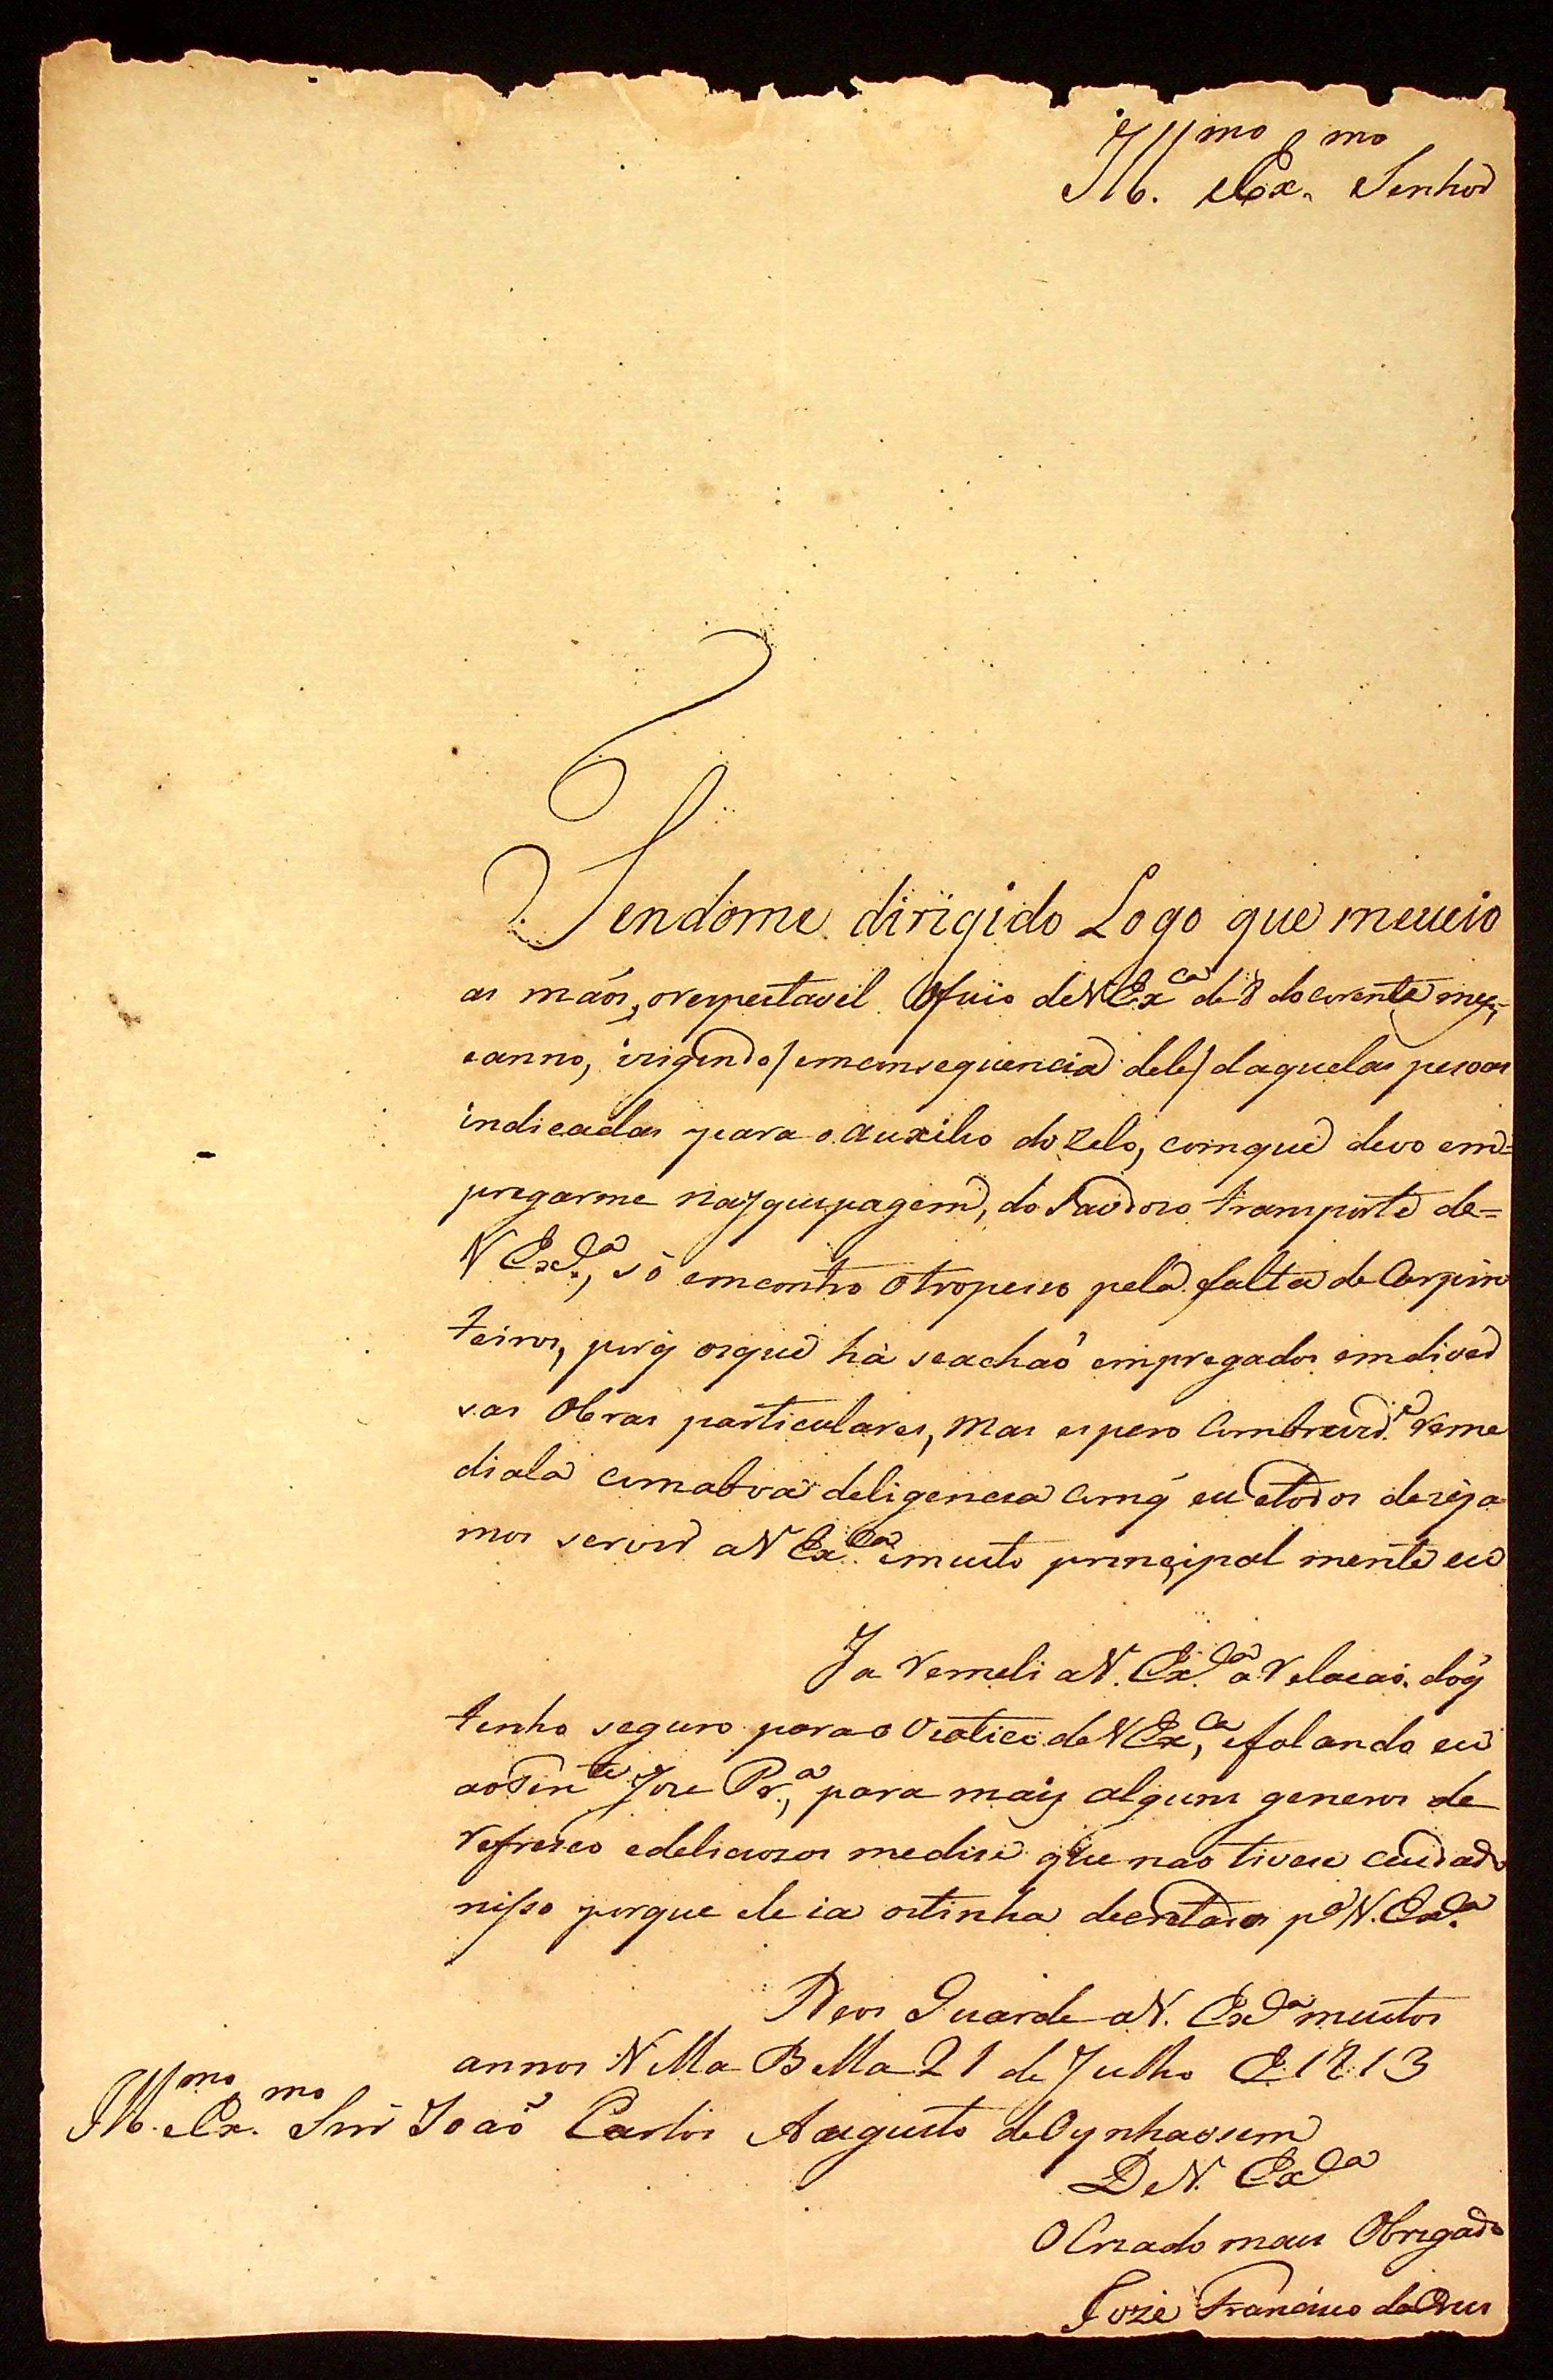 Ill.mo Ex.mo Senhor
Tendome dirigido Logo que meveio
as mãos, orespeitavel Oficio deV Ex.ca de 8 do corrente mez,
eanno, exigindo/emconsequencia dele/ daquelas pesoas
indicadas para o auxilio do zelo, comque devo em=
pregarme nayquipagem, do Saudozo transporte de=
V Ex.ca, só emcontro otropeso pela falta de Carpin
teiros, porq̃ osque hà seachaõ empregados emdiver
sas Obras particulares, Mas espero Combrevid.e reme
diala comaboa deligencia Comq̃ eu etodos deseja
mos servir aV Ex.ca emuito principal mente eu
Ja remeti aV. Ex.ca a relacaõ, doq̃
tenho seguro para o viatico deV Ex.ca, efalando eu
aoTen.te Joze Pr.a, para mais alguns generos de
refresco edeliciozos medise que nao tivese cuidado
nisso porque ele ia ostinha decretados p.a V. Ex.ca
Deos Guarde aV. Ex.ca muitos
annos Villa Bella 21 de Julho de 1813
Ill.mo Ex.mo Snr̃ Joaõ Carlos Augusto deOynhausem
DeV. Ex.ca
OCriado mais Obrigado
Jozé Francisco da Crus